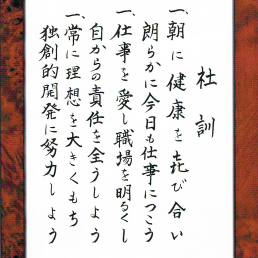 社訓
一、朝に健康を㐂び合い
朗らかに今日も仕事につこう
一、仕事を愛し職場を明るくし
自からの責任を全うしよう
一、常に理想を大きくもち
独創的開発に努力しよう